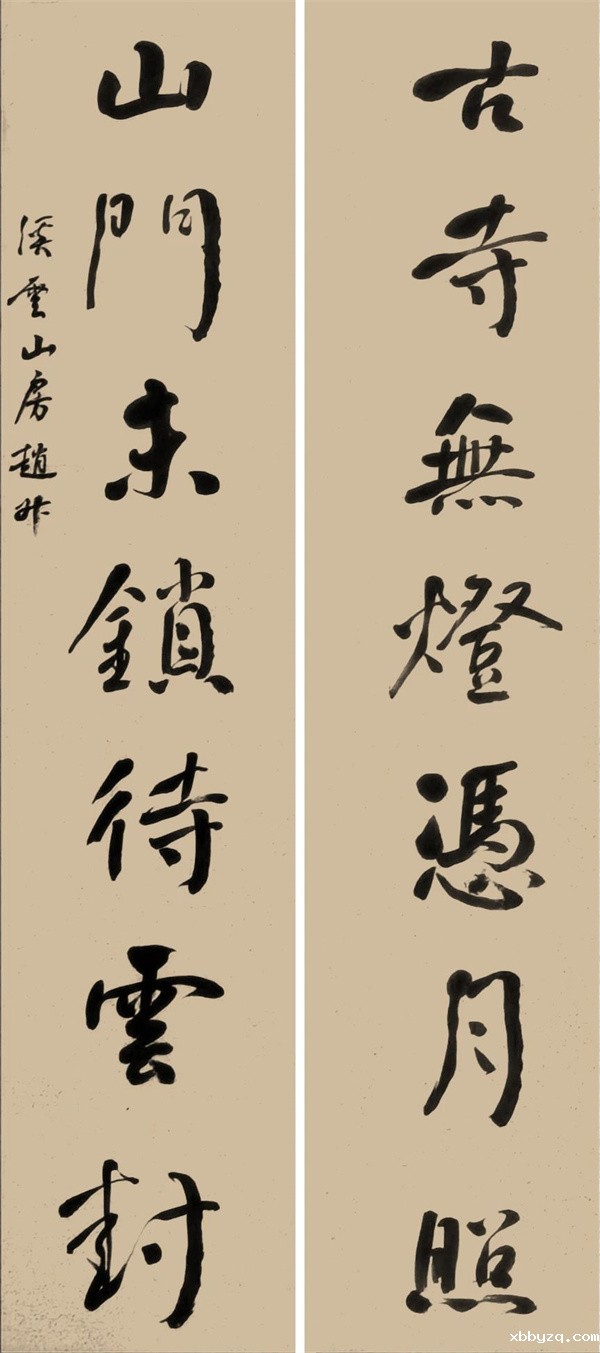 古寺無燈憑月照
山門未鎖待雲封
溪雲山房趙升
xbbyzq.com